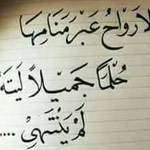 لأرواح عبر منامها
حُلمًا جميلاً ليته
لم ينتهي ....